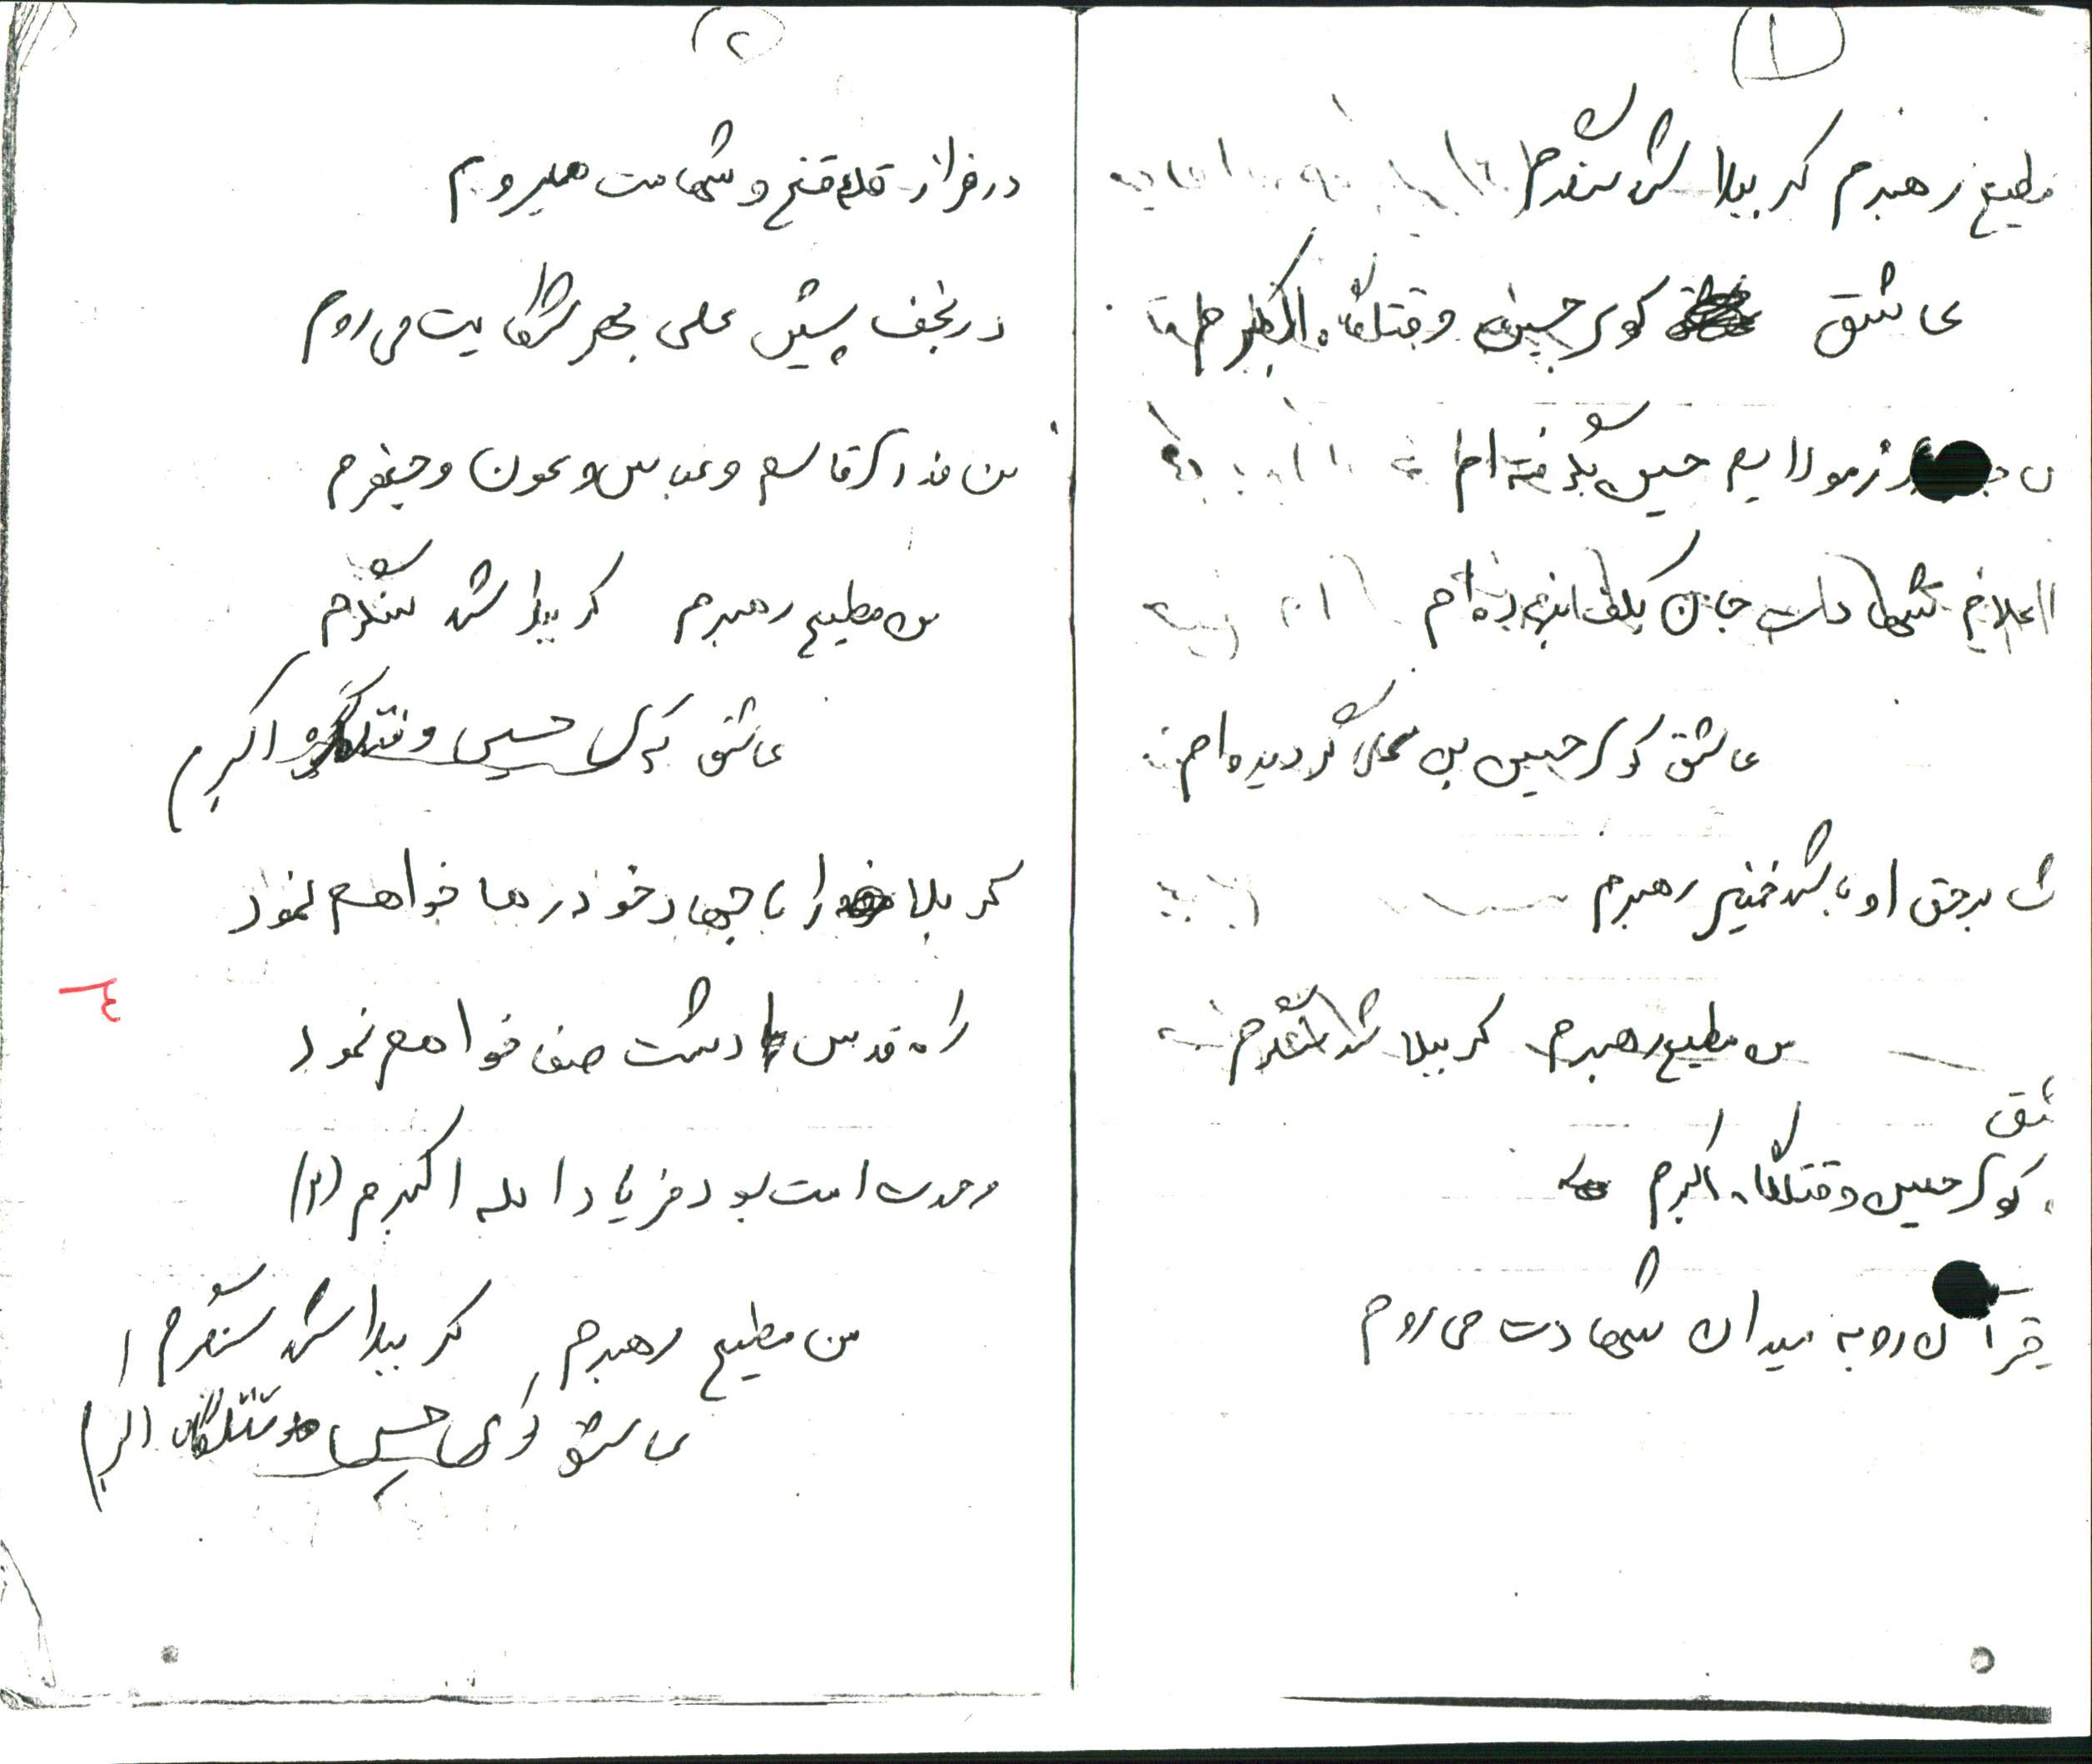 ۱
مطیع رهبرم کربلا شد سنگرم
عاشق کوی حسین و قتلگاه اکبرم
از مولایم حسین بگرفته ام
شهادت جان بکف بنهاده ام
عاشق کوی حسین بن علی گردیده ام
بر حق او باشد خمینی رهبرم
من مطیع رهبرم کربلا شد سنگرم
شق
کوی حسین و قتلگاه اکبرم
رو به میدان شهادت می روم
۲
در فراز قله فتح و شهامت میروم
در نجف پیش علی بهر شکایت می روم
من فدای قاسم و عباس و عون و جعفرم
من مطیع رهبرم کربلا شد سنگرم
عاشق کوی حسین و قتلگاه اکبرم
کربلا را با جهاد خود رها خواهم نمود
راه قدس دشت صفا خواهم نمود
وحدت امت بود فریاد الله اکبرم (۲)
من مطیع رهبرم کربلا شد سنگرم
عاشق کوی حسین و قتلگاه اکبرم